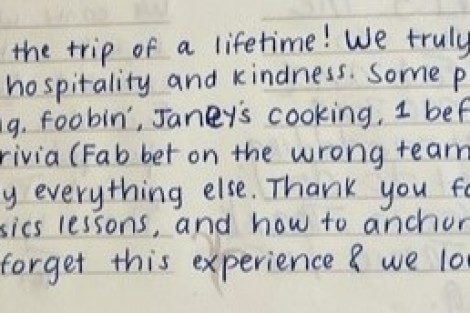 the trip of a lifetime! We truly
hospitality and kindness. Some p
g, foobin', Janey's cooking, 1 bef
rivia (Fab bet on the wrong team
y everything else. Thank you fo
sics lessons, and how to anchor
forget this experience & we lo